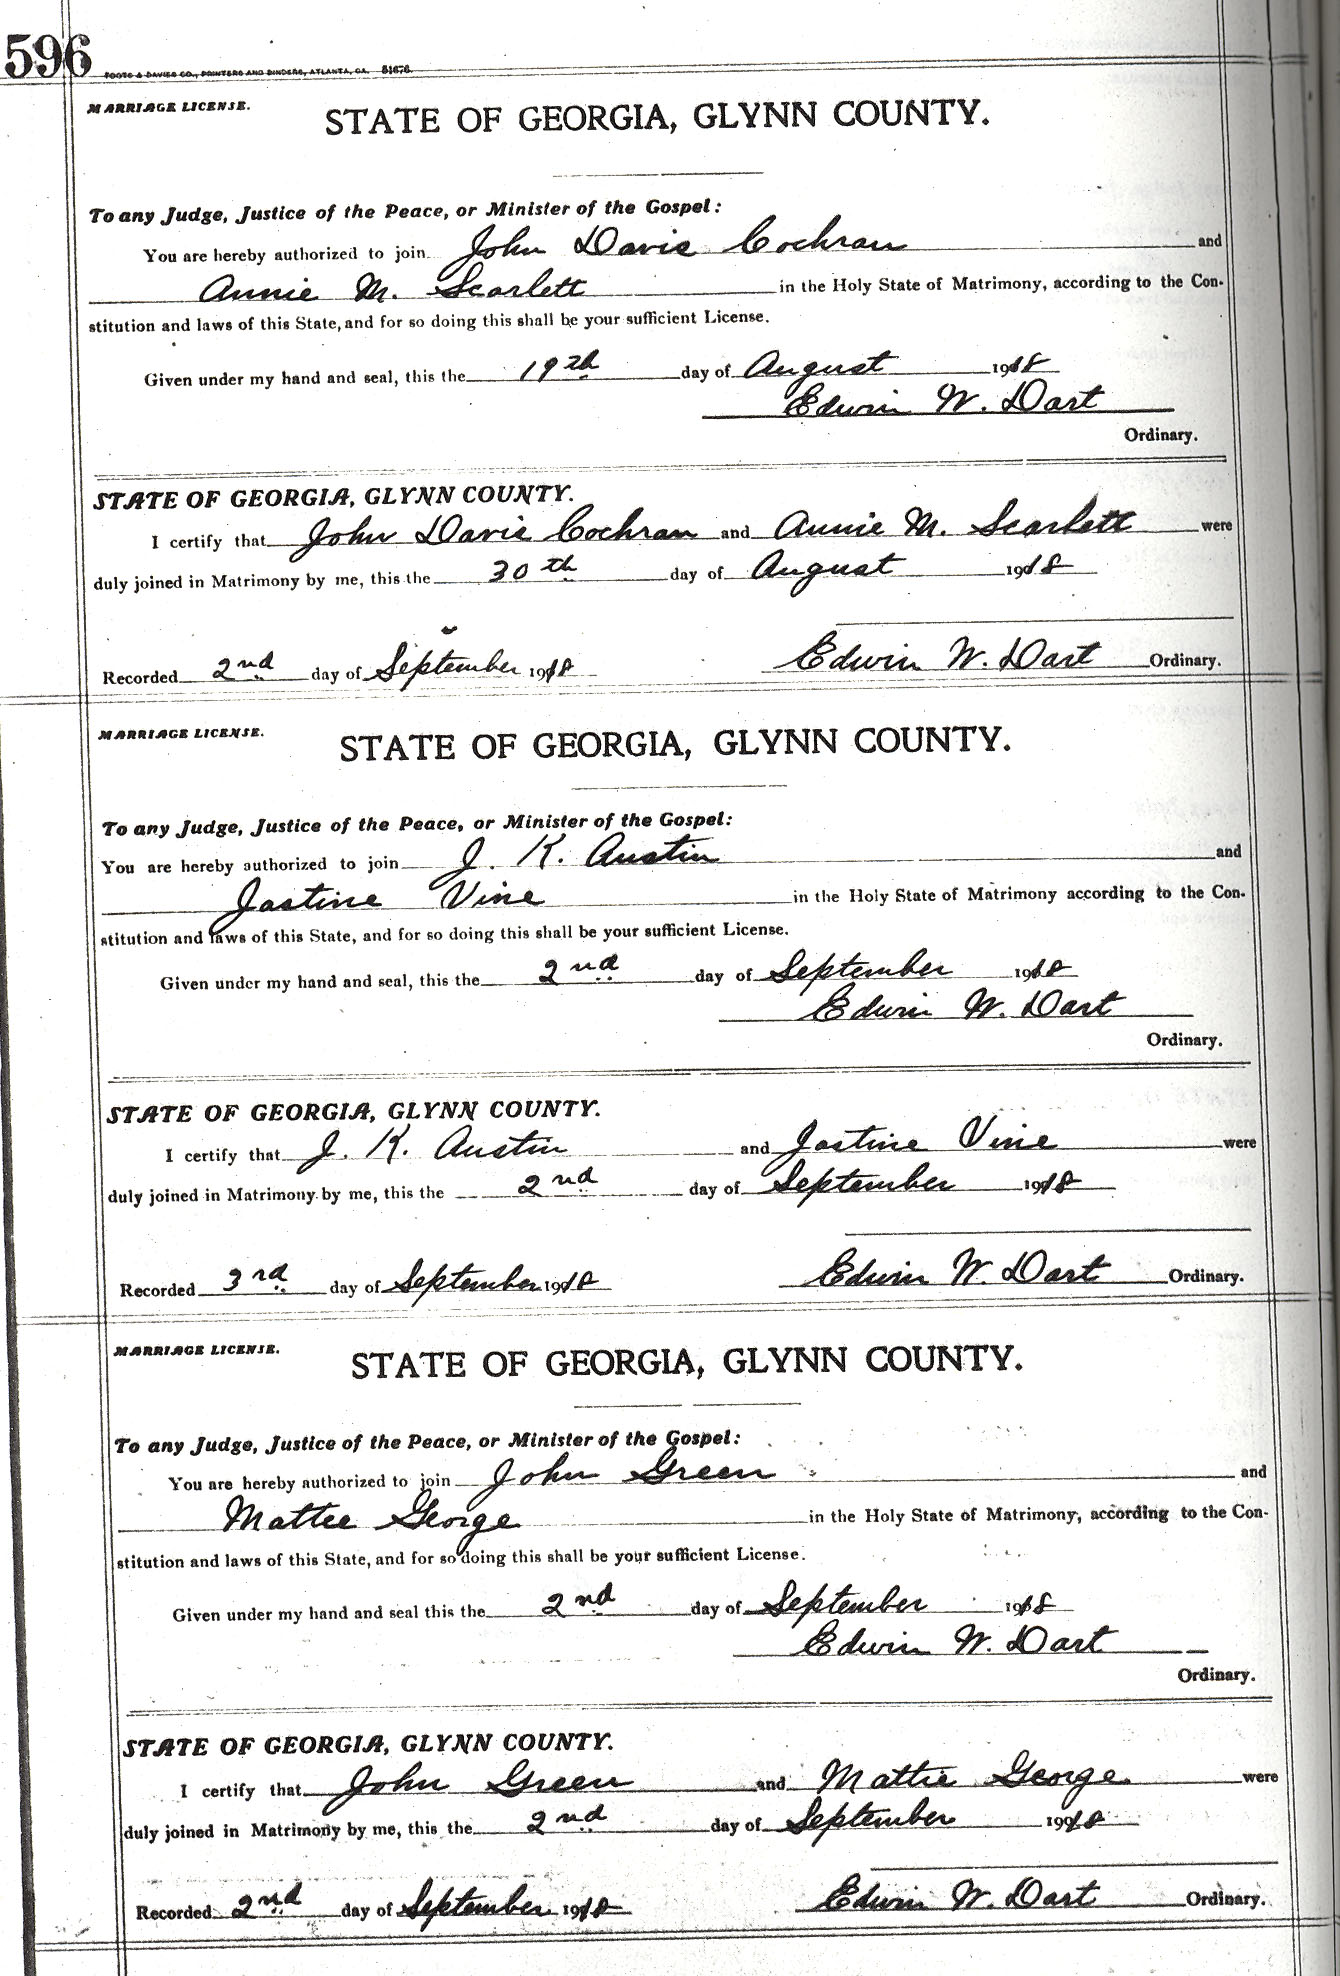 596
FOOTE & DAVIES CO., PRINTERS AND BINDERS, ATLANTA, GA. 51676.
MARRIAGE LICENSE.
STATE OF GEORGIA, GLYNN COUNTY.
To any Judge, Justice of the Peace, or Minister of the Gospel:
You are hereby authorized to join John Davis Cochran and
Annie M. Scarlett in the Holy State of Matrimony, according to the Con-
stitution and laws of this State, and for so doing this shall be your sufficient License.
Given under my hand and seal, this the 19th day of August 1918
Edwin W. Dart
Ordinary.
STATE OF GEORGIA, GLYNN COUNTY.
I certify that John Davis Cochran and Annie M. Scarlett were
duly joined in Matrimony by me, this the 30th day of August 1918
Recorded 2nd day of September 1918 Edwin W. Dart Ordinary.
MARRIAGE LICENSE.
STATE OF GEORGIA, GLYNN COUNTY.
To any Judge, Justice of the Peace, or Minister of the Gospel:
You are hereby authorized to join J. K. Austin and
Jastine Vine in the Holy State of Matrimony according to the Con-
stitution and laws of this State, and for so doing this shall be your sufficient License.
Given under my hand and seal, this the 2nd day of September 1918
Edwin W. Dart
Ordinary.
STATE OF GEORGIA, GLYNN COUNTY.
I certify that J. K. Austin and Jastine Vine were
duly joined in Matrimony by me, this the 2nd day of September 1918
Recorded 3rd day of September 1918 Edwin W. Dart Ordinary.
MARRIAGE LICENSE.
STATE OF GEORGIA, GLYNN COUNTY.
To any Judge, Justice of the Peace, or Minister of the Gospel:
You are hereby authorized to join John Green and
Mattee George in the Holy State of Matrimony, according to the Con-
stitution and laws of this State, and for so doing this shall be your sufficient License.
Given under my hand and seal this the 2nd day of September 1918
Edwin W. Dart
Ordinary.
STATE OF GEORGIA, GLYNN COUNTY.
I certify that John Green and Mattie George were
duly joined in Matrimony by me, this the 2nd day of September 1918
Recorded 2nd day of September 1918 Edwin W. Dart Ordinary.